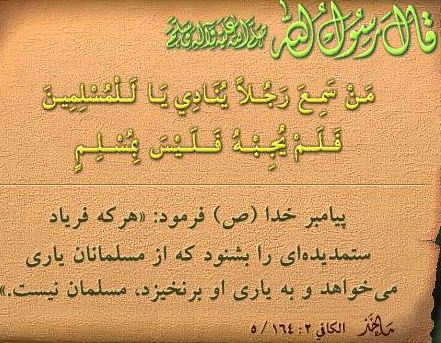 قال رسول الله صلی الله علیه وآله وسلم
مَنْ سَمِعَ رَجُلاً يُنَادِي يَا لَلْمُسْلِمِينَ
فَلَمْ يُجِبْهُ فَلَيْسَ بِمُسْلِمٍ
پیامبر خدا (ص) فرمود: «هرکه فریاد
ستمدیده‌ای را بشنود که از مسلمانان یاری
می‌خواهد و به یاری او برنخیزد، مسلمان نیست.»
مأخذ الكافي ٢: ١٦٤ / ٥